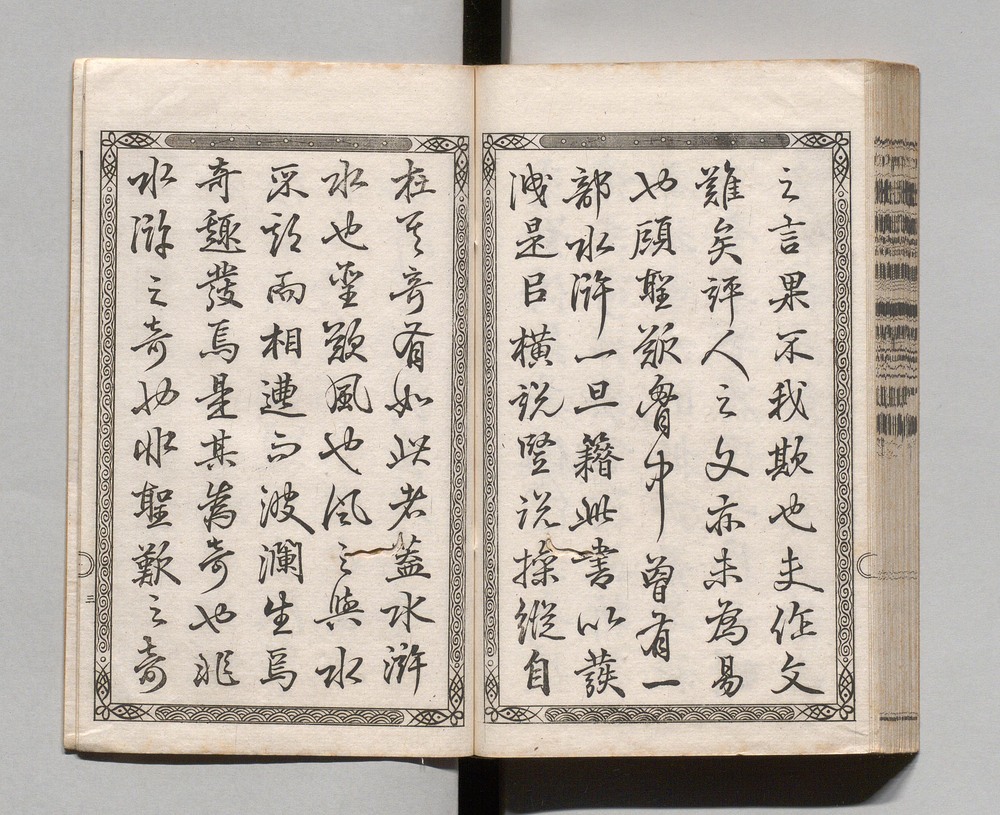 之言果不我欺也夫作文
難矣評人之文亦未為易
也顧聖歎胷中曾有一
部水滸一旦籍此書以發
洩是㠯橫說竪說操縱自
在其奇有如此者蓋水滸
水也聖歎風也風之與水
而相遭而波瀾生焉
奇趣發焉是其為奇也非
水滸之奇抑非聖歎之奇
三